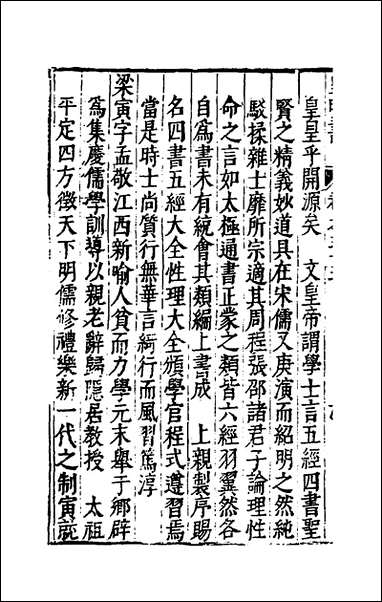 皇皇乎開源矣　文皇帝謂學士言五經四書聖
賢之精義妙道具在宋儒又庚演而紹明之然純
駁揉雜士靡所宗適其周程張邵諸君子論理性
命之言如太極通書正蒙之類皆六經羽翼然各
自爲書未有統會其類編上書成　上親製序賜
名四書五經大全性理大全頒學官程式遵習焉
當是時士尚質行無華言綺行而風習篤淳
梁寅字孟敬江西新喻人貧而力學元末舉于鄉辟
爲集慶儒學訓導以親老辭歸隱居教授　太祖
平定四方徵天下明儒修禮樂新一代之制寅就